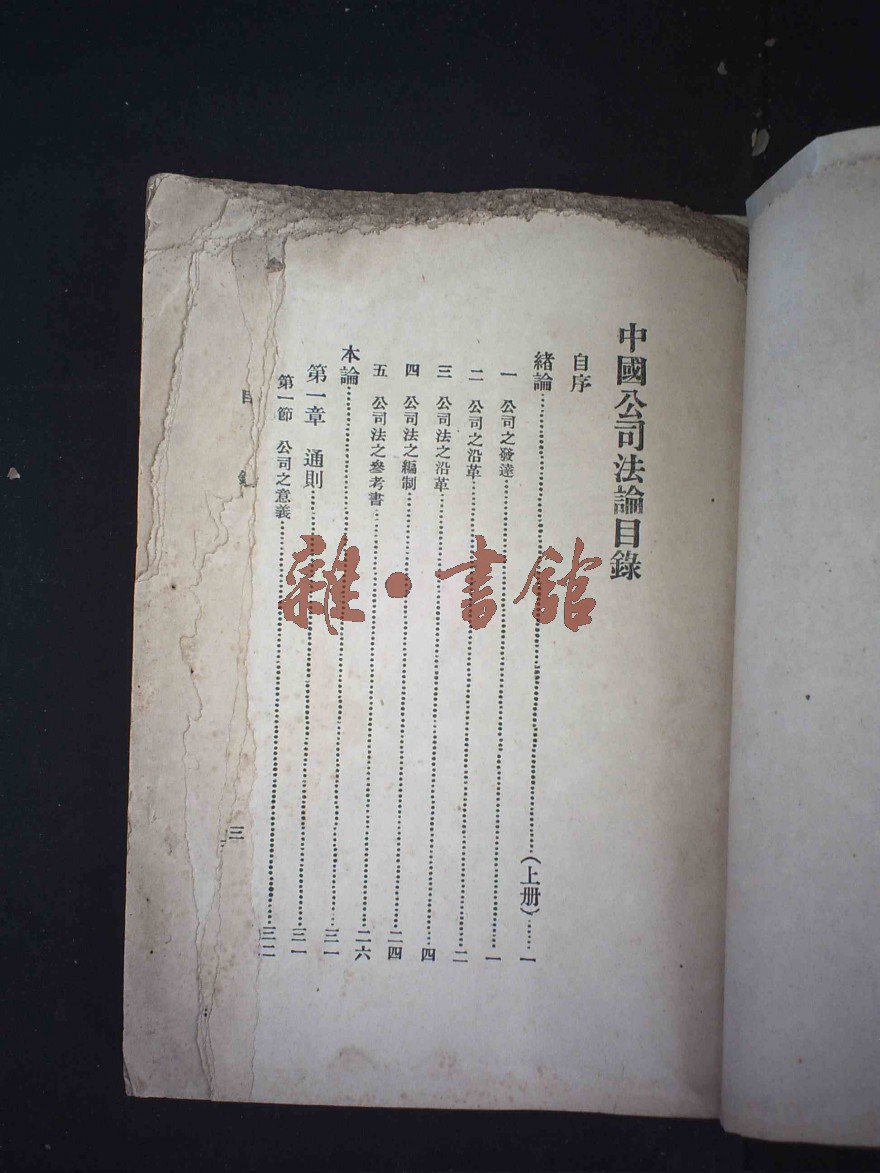 中國公司法論目錄
自序
緒論……(上册)……一
一 公司之發達……一
二 公司之沿革……二
三 公司法之沿革……四
四 公司法之編制……二四
五 公司法之參考書……二六
本論……三一
第一章 通則……三一
第一節 公司之意義……三二
目
雜·書館